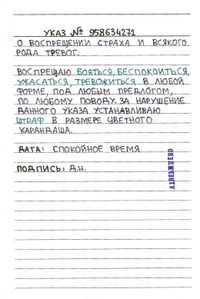 УКАЗ № 958634271
О ВОСПРЕЩЕНИИ СТРАХА И ВСЯКОГО
РОДА ТРЕВОГ.
ВОСПРЕЩАЮ БОЯТЬСЯ, БЕСПОКОИТЬСЯ,
УЖАСАТЬСЯ, ТРЕВОЖИТЬСЯ В ЛЮБОЙ
ФОРМЕ, ПОД ЛЮБЫМ ПРЕДЛОГОМ,
ПО ЛЮБОМУ ПОВОДУ. ЗА НАРУШЕНИЕ
ДАННОГО УКАЗА УСТАНАВЛИВАЮ
ШТРАФ В РАЗМЕРЕ ЦВЕТНОГО
КАРАНДАША.
ДАТА: СПОКОЙНОЕ ВРЕМЯ
ПОДПИСЬ: Д.Н.